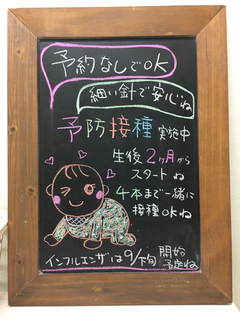 予約なしでOK
細い針で安心ね
予防接種 実施中
生後2ヶ月から
スタートね
4本まで一緒に
接種OKね
インフルエンザは9/下旬 開始
予定ね